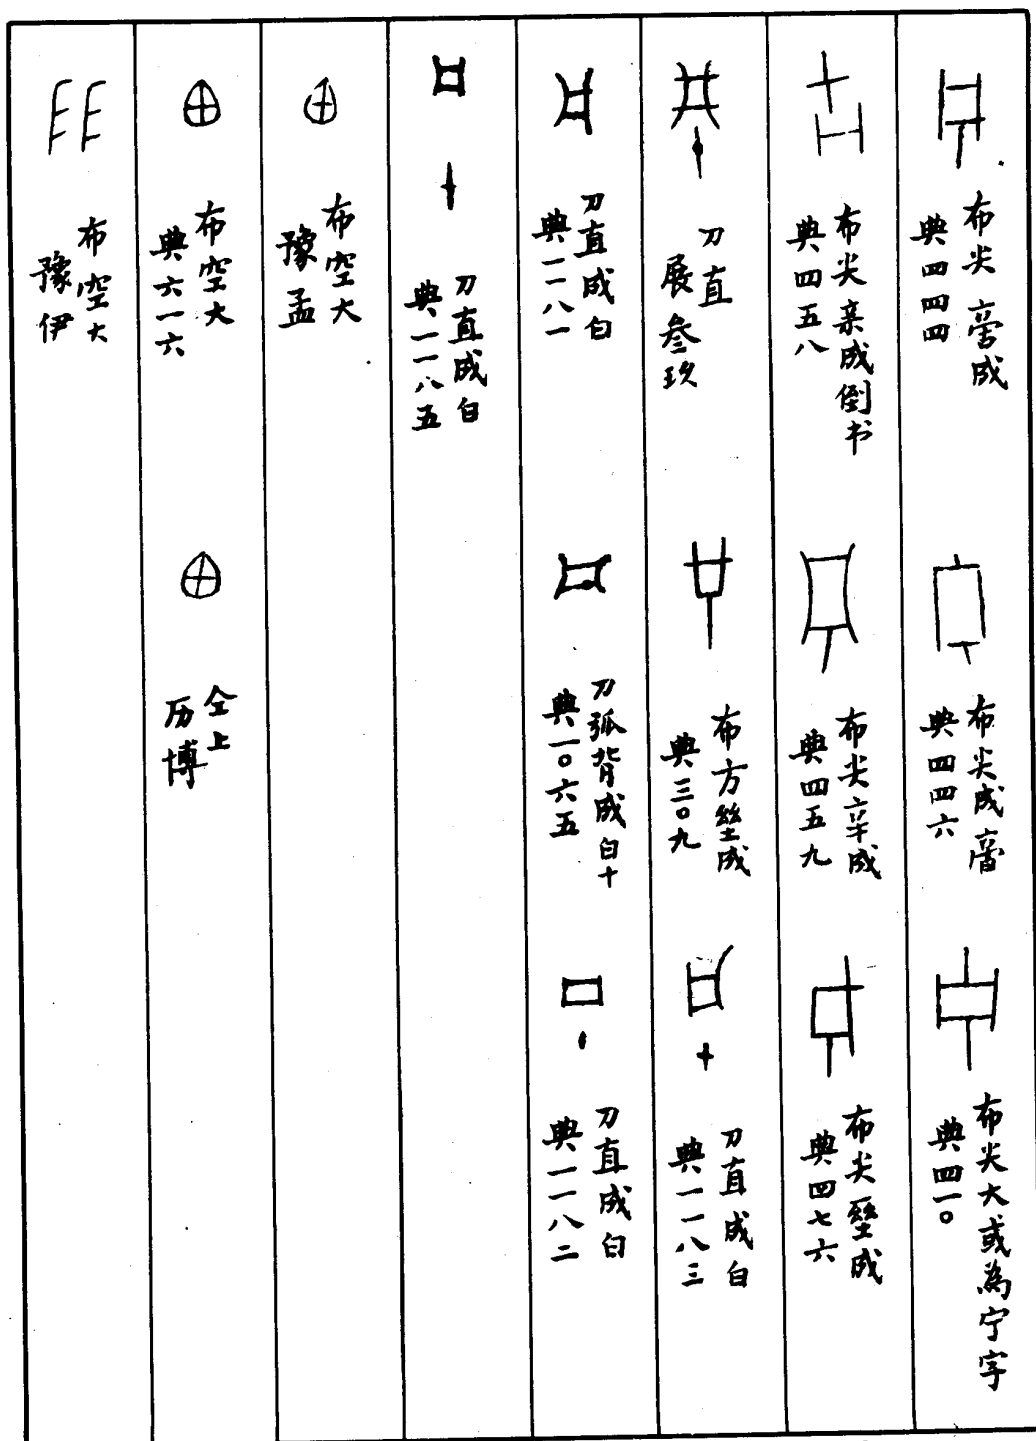 布尖啻成
典四四四
布尖成啻
典四四六
布尖大或為宁字
典四一〇
布尖亲成倒书
典四五八
布尖辛成
典四五九
布尖壐成
典四七六
刀直
展叁玖
布方壐成
典三〇九
刀直成白
典一一八三
刀直成白
典一一八一
刀弧背成白十
典一〇六五
刀直成白
典一一八二
刀直成白
典一一八五
布空大
豫孟
布空大
典六一六
仝上
历博
布空大
豫伊